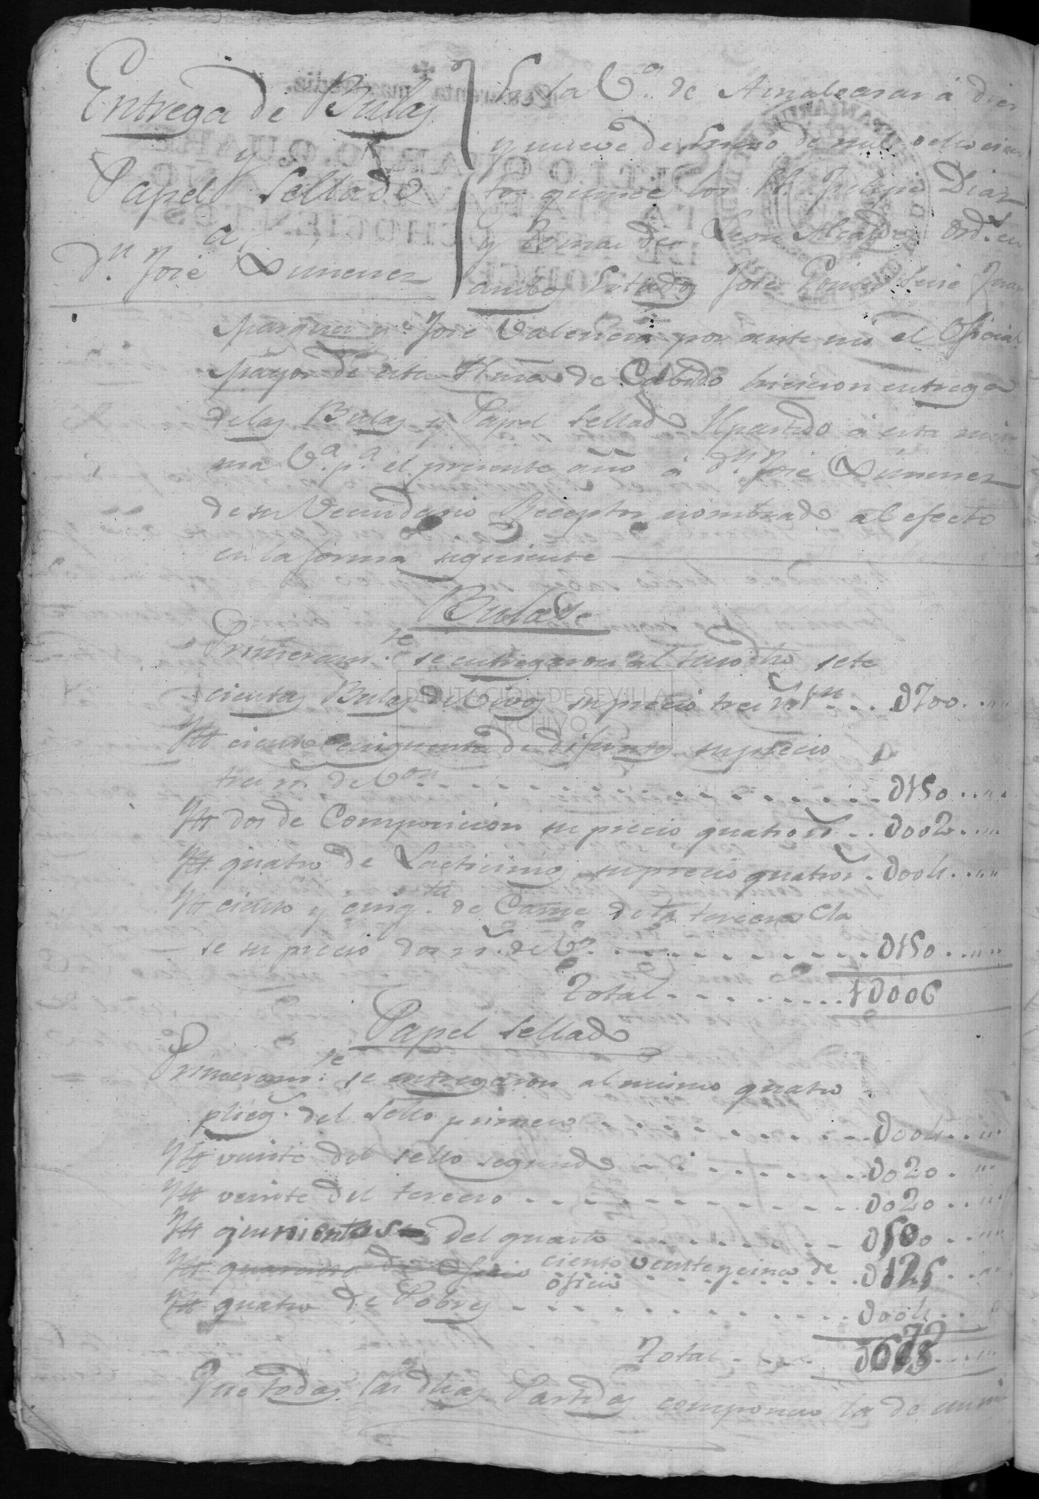 Entrega de Bulas
y
Papel Sellado
a
Dn. José Ximenez
En la Va. de Almadenar á diez
y nueve de Enero de mil ochocien
tos quince los SS. Felipe Diaz
y Leon Alcaldes Ords. en
ambos Estados José Juan
Marquez y José Valencia por ante mi el Oficial
Mayor de esta Essna. de Cabildo hicieron entrega
de las Bulas y Papel Sellado Repartido á esta mis
ma Va. pa. el presente año á Dn. José Ximenez
de su Vecindario Receptor nombrado al efecto
en la forma siguiente
Bulas
Primeramte. se entregaron al susodho sete
cientas Bulas de Vivos su precio tres rs. vn. ... D700
Yt ciento cinquenta de difuntos su precio
tres rs. de Von. ... D150
Yt dos de Composicion su precio quatro rs. ... D002
Yt quatro de Lacticinios su precio quatro rs. ... D004
Yt ciento y cinqta. de Carne de la tercera Cla
se su precio dos rs. de Von. ... D150
Total ... 1D006
Papel Sellado
Primeramte. se entregaron al mismo quatro
pliegs. del Sello primero ... D004
Yt veinte del sello segundo ... D020
Yt veinte del tercero ... D020
Yt quinientos del quarto ... D500
Yt quarenta de Oficio ciento veinte y cinco de
oficio ... D125
Yt quatro de Pobres ... D004
Total ...
Que todas las dhas Partidas componen la de un mil
DIPUTACIÓN DE SEVILLA
ARCHIVO